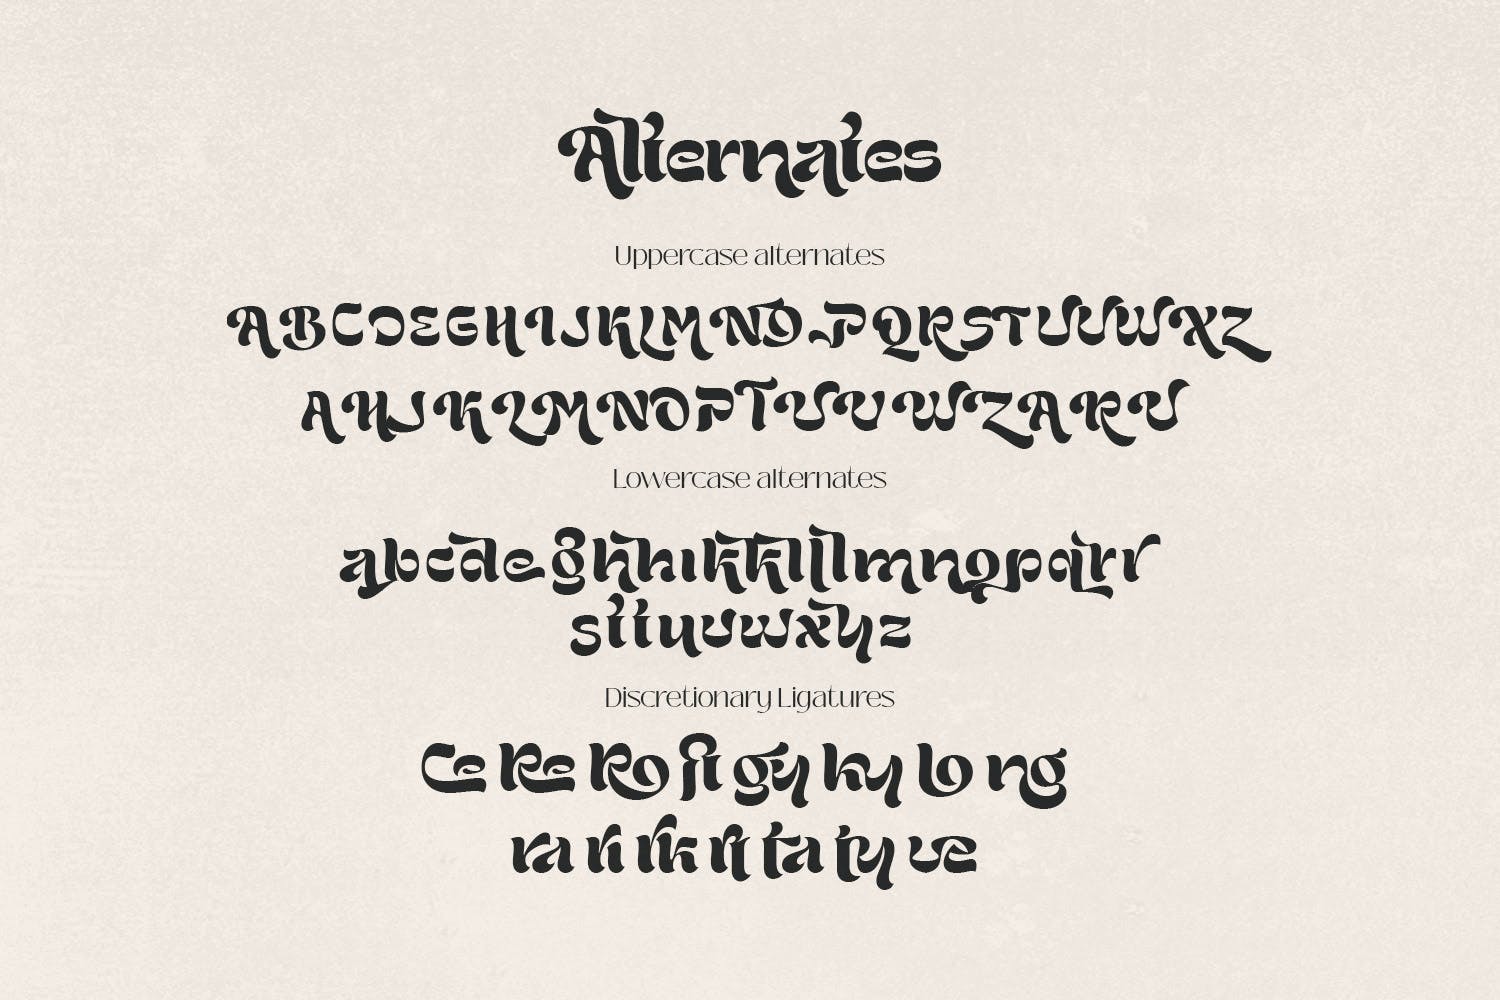 Alternates
Uppercase alternates
ABCDEGHIJKLMNOPQRSTUVWXZ
AHJKLMNOPTUVWZARV
Lowercase alternates
abcdeghhikklllmnopqrr
sttuvwxyz
Discretionary Ligatures
Ce Re Ro fi gy ky lo ng
ra ri rk rt ta ty ve